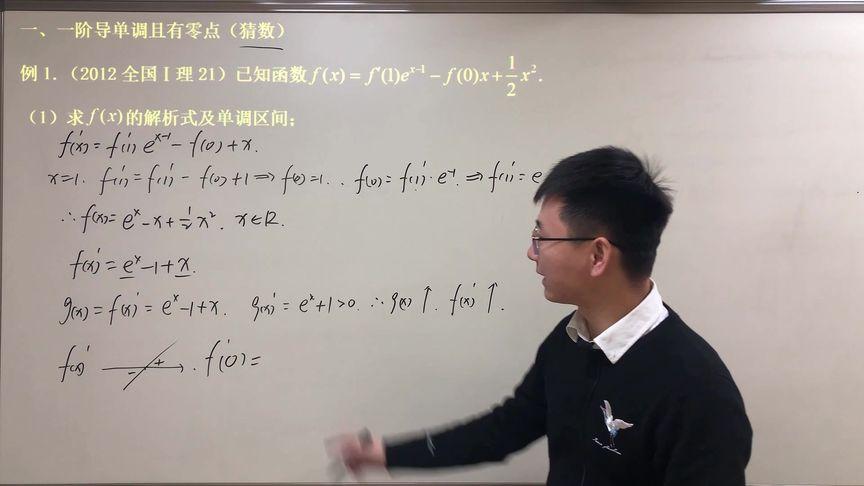 一、一阶导单调且有零点（猜数）
例 1.（2012 全国 I 理 21）已知函数 f(x) = f'(1)e^{x-1} − f(0)x + \frac{1}{2}x².
（1）求 f(x) 的解析式及单调区间；
f'(x) = f'(1) e^{x-1} − f(0) + x.
x=1. f'(1) = f'(1) − f(0) + 1 ⇒ f(0) = 1. . f(0) = f'(1)·e^{-1}. ⇒ f'(1) = e
∴ f(x) = e^x − x + \frac{1}{2}x². x∈R.
f'(x) = e^x − 1 + x.
g(x) = f'(x) = e^x − 1 + x. g'(x) = e^x + 1 > 0. ∴ g(x) ↑. f'(x) ↑.
f'(x) − + . f'(0) =